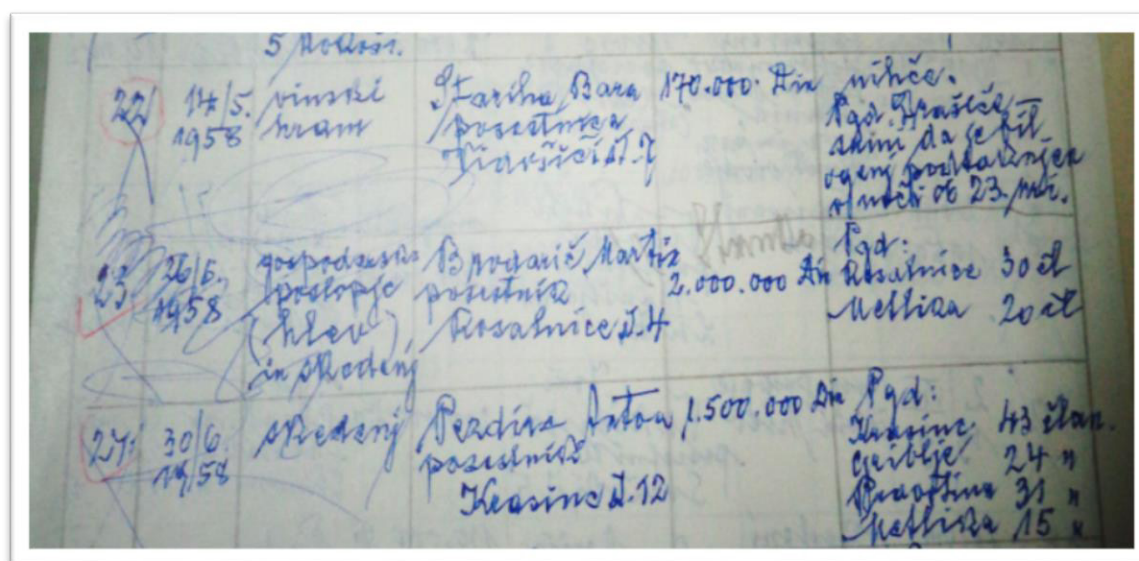 5 Kokoši.
22/ 14/5. 1958 vinski hram Stariha Bara posestnica št. 7 170.000 Din nihče. Pgd. Hrašče
da je bil
ogenj podtaknjen
ob 23. uri.
23. 26/6. 1958 gospodarsko poslopje (hlev) in skedenj
Brodarič Martin posestnik Rosalnice š. 4
2.000.000 Din
Pgd:
Rosalnice 30 čl
Metlika 20 čl
24. 30/6. 1958 skedenj
Pezdirc Anton posestnik Krasinc š. 12
1.500.000 Din
Pgd:
Krasinc 43 član.
Griblje 24 "
Podzemelj 31 "
Metlika 15 "